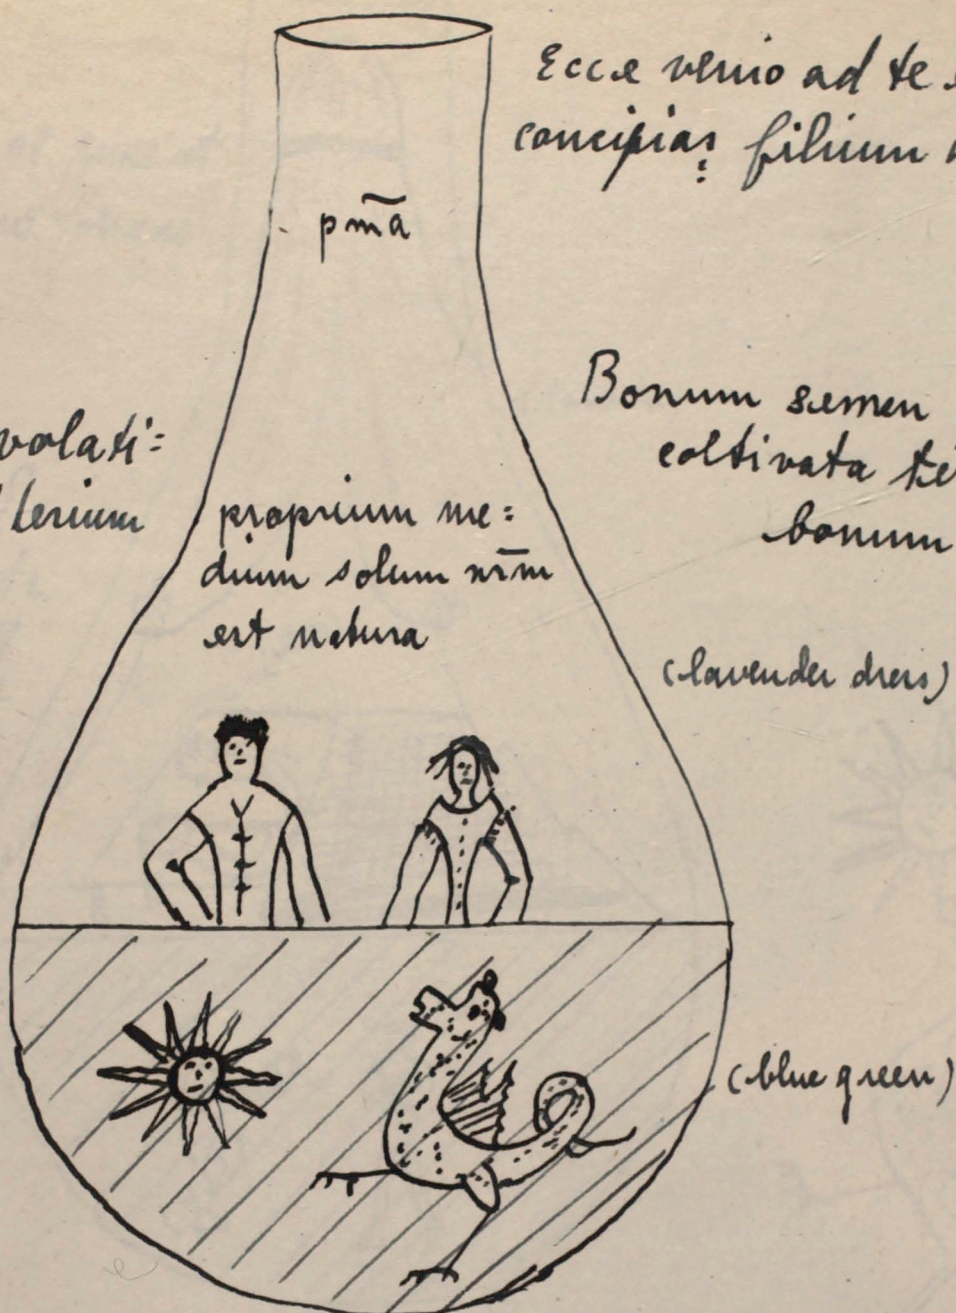 Ecce venio ad te
concipias filium
pm̄a
Bonum semen
coltivata
bonum
volati=
proprium me=
dium solum nr̄m
est natura
(lavender dress)
(blue green)